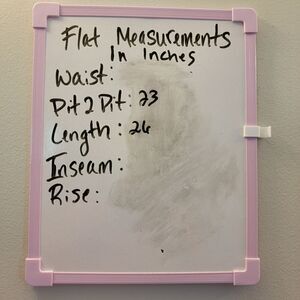 Flat Measurements
In Inches
Waist:
Pit 2 Pit: 23
Length: 26
Inseam:
Rise: